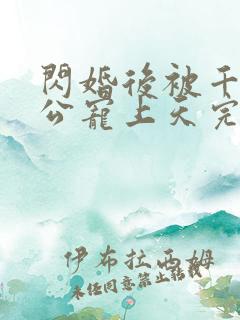 閃婚後被千
公寵上天完
伊布拉西姆
未经同意禁止转载